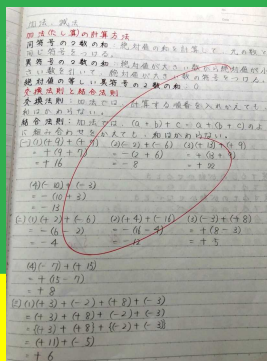 加法、減法
加法(たし算)の計算方法
同符号の2数の和:絶対値の和を計算して、元の数と
同じ符号をつける。
異符号の2数の和:絶対値が大きい数から絶対値が小
さい数を引いて、絶対値が大きい数の符号をつける。
絶対値の等しい異符号の2数の和:0
交換法則と結合法則
交換法則:加法では、計算する順番を入れかえても
和はかわらない。
結合法則:加法では、(a+b)+c=(a+b)+cのよ
に組み合わせをかえても、和はかわらない。
(-)(1)(+9)+(+7) (2)(-2)+(-6) (3)(+13)+(+9)
=+(9+7) =-(2+6) =+(13+9)
=+16 =-8 =+22
(4)(-10)+(-3)
=-(10+3)
=-13
(=)(1)(+2)+(-6) (2)(+4)+(-16) (3)(-3)+(+8)
=-(6-2) =-(16-4) =+(8-3)
=-4 =-12 =+5
(4)(-7)+(+15)
=+(15-7)
=+8
(1)(+3)+(-2)+(+8)+(-3)
=(+3)+(+8)+(-2)+(-3)
={(+3)+(+8)}+{(-2)+(-3)}
=(+11)+(-5)
=+6